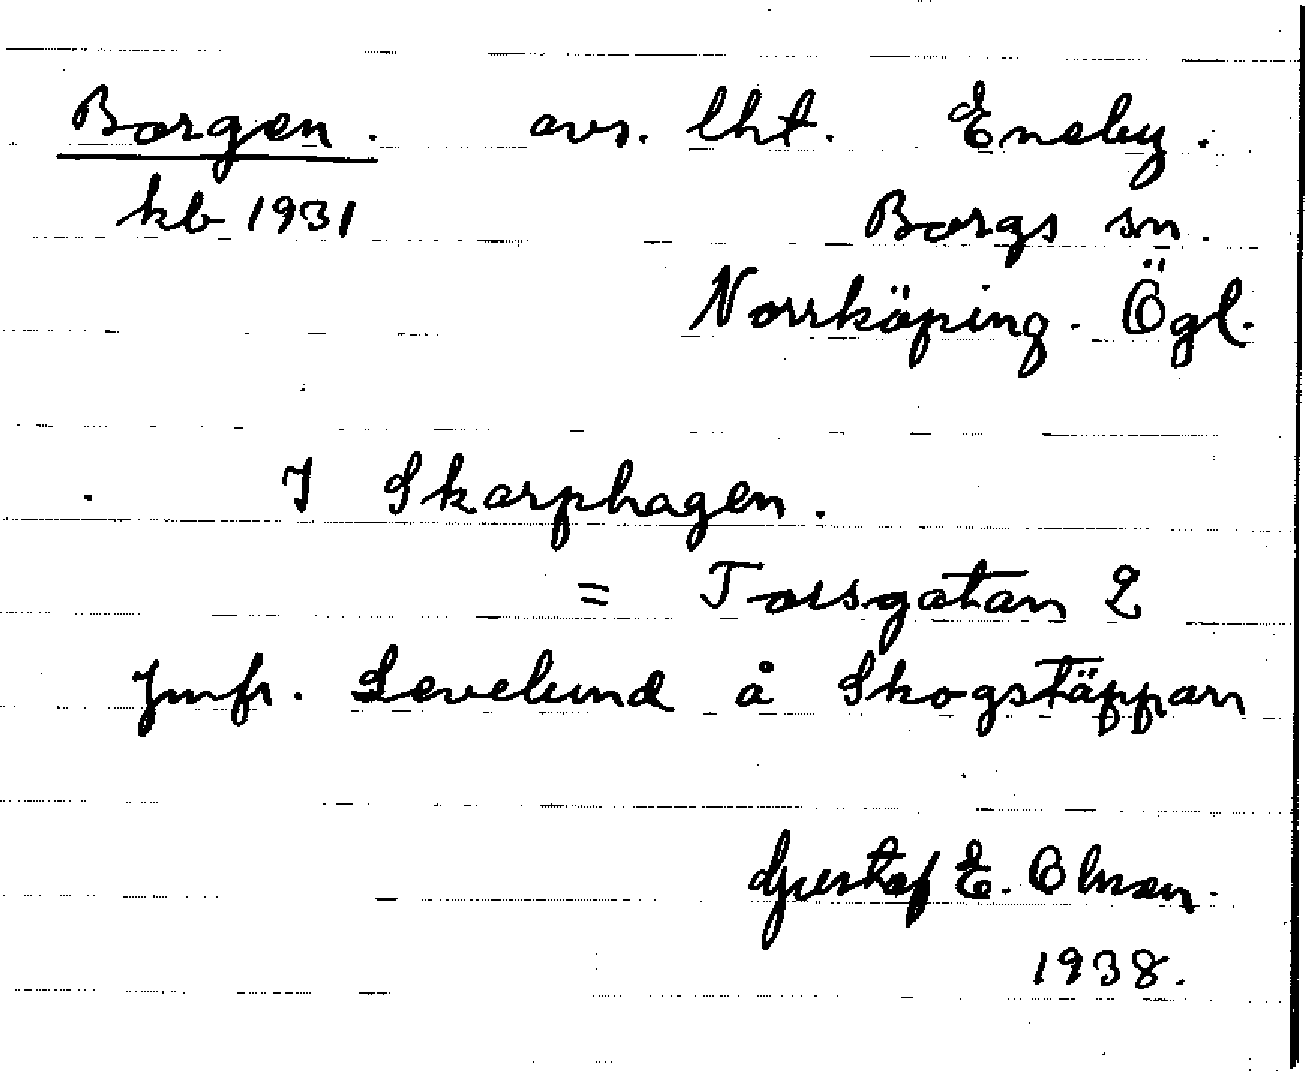 Borgen. avs. lht. Eneby.
kb 1931 Borgs sn.
Norrköping. Ögl.
I Skarphagen.
= Torsgatan 2
Jmfr. Levelund å Skogstäppan
Gustaf E. Olsson.
1938.